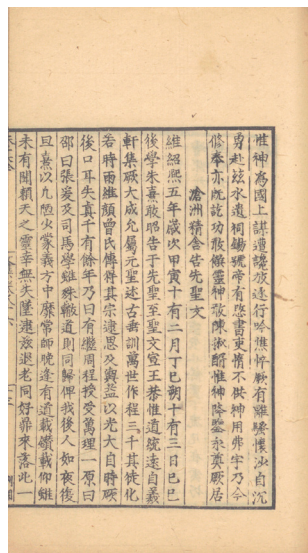 惟神為國上謀遭讒放逐行吟憔悴厥有離騷懷沙自沉
勇赴玆水遺祠錫號帝有愍書吏惰不供神用弗宇乃今
修奉亦既訖功敢儼靈神敢陳椒醑惟神降鑒永奠厥居
滄洲精舍告先聖文
維紹熙五年歲次甲寅十有二月丁巳朔十有三日己巳
後學朱熹敢昭告于先聖至聖文宣王恭惟道統遠自羲
軒集厥大成允屬元聖述古垂訓萬世作程三千其徒化
若時雨維顏曾氏傳得其宗逮思及輿益以光大自時厥
後口耳失真千有餘年乃曰有繼周程授受萬理一原曰
邵曰張爰及司馬學雖殊轍道則同歸俾我後人如夜復
旦熹以凡陋少蒙義方中靡常師晚逢有道載鑽載仰雖
未有聞賴天之靈幸無失墜逮玆退老同好鼎來落此一